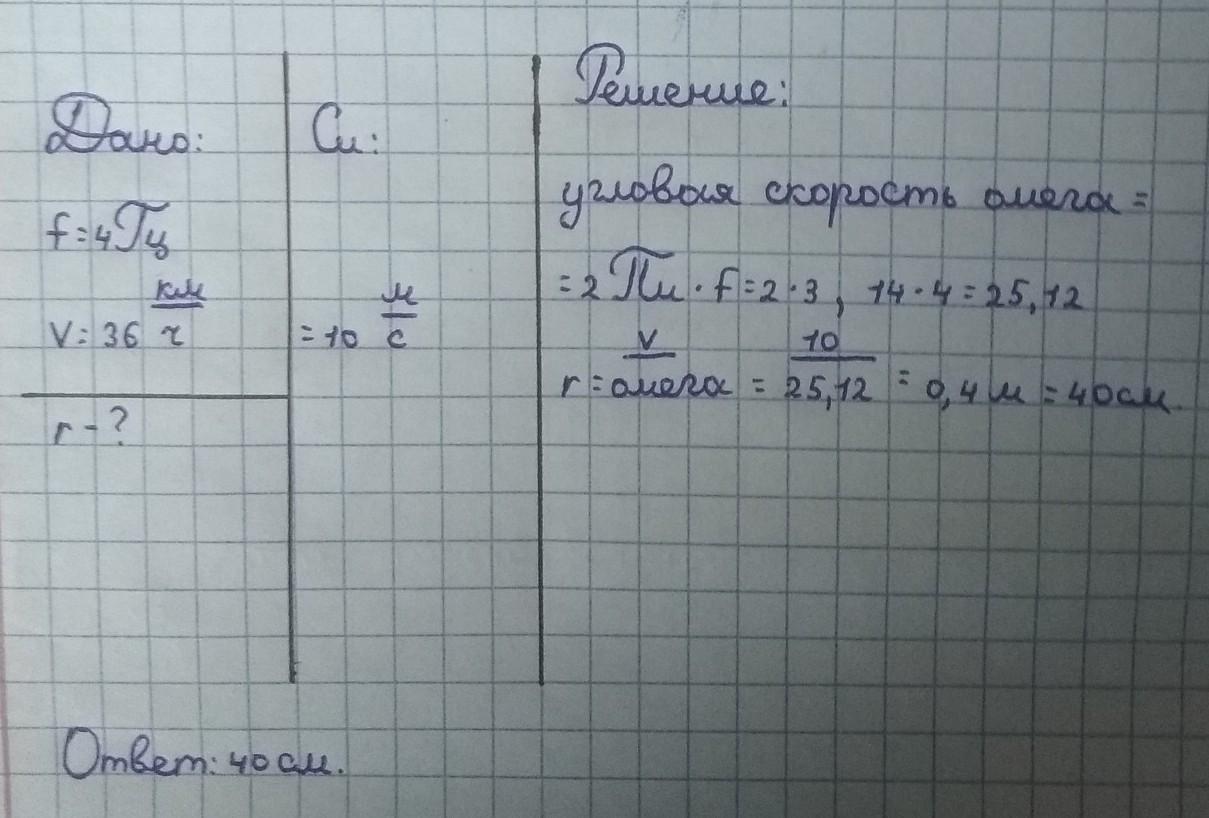 Дано:
f=4Гц
V=36 км/ч
r-?
Си:
=10 м/с
Решение:
угловая скорость омега=
=2Пи·f=2·3,14·4=25,12
r=v/омега=10/25,12=0,4м=40см.
Ответ: 40см.